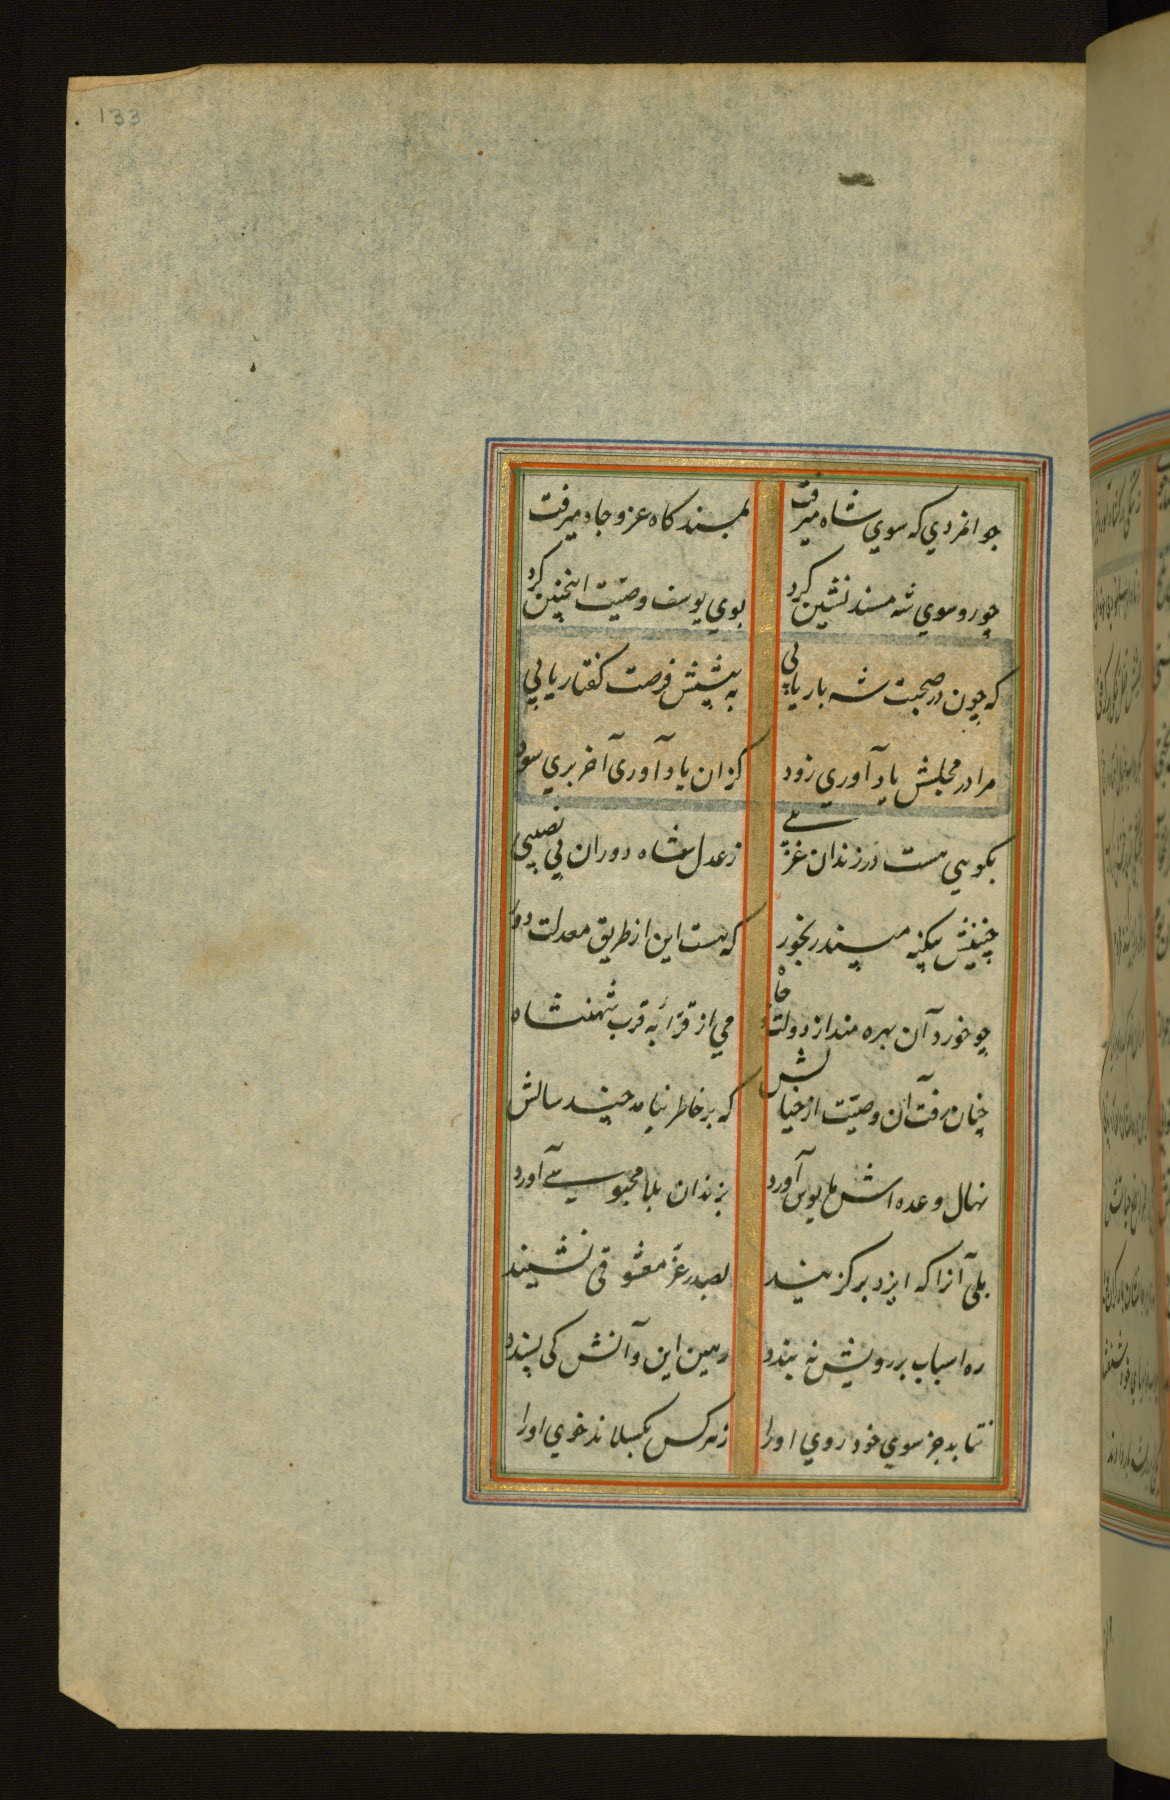 133
جوانمردي که سوي شاه میرفت
بمسند کاه عز و جاه میرفت
چو رو سوي شه مسند نشین کرد
بوي یوسف وصیّت اینچنین کرد
که چون در صحبت شه بار یابي
به پیشش فرصت کفتار یابي
مرا در مجلسش یاد آوري زود
کزان یاد آوري آخر بري سود
بکویي هست در زندان غریبے
ز عدل شاه دوران بي نصیبي
چنینش بیکنه مپسند رنجور
که هست این از طریق معدلت دور
چو خورد آن بهره مند از دولت و جاه
مي از قرّابه قرب شهنشاه
چنان رفت آن وصیّت از خیالش
که بر خاطر نیامد چند سالش
نهال وعده اش مایوس آورد
بزندان بلا محبوسے آورد
بلي آنرا که ایزد برکزیند
بصدر عزّ معشوقي نشیند
ره اسباب بر رویش به بندد
رهین این و آنش کي پسندد
نتابد جز سوي خود روي او را
ز هر کس بکسلاند خوي او را